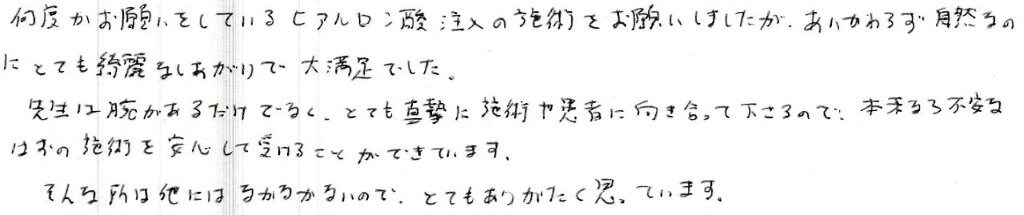 何度かお願いをしているヒアルロン酸注入の施術をお願いしましたが、あいかわらず自然なの
にとても綺麗なしあがりで大満足でした。
先生は腕があるだけでなく、とても真摯に施術や患者に向き合って下さるので、本来なら不安な
はずの施術を安心して受けることができています。
そんな所は他にはなかなかないので、とてもありがたく思っています。